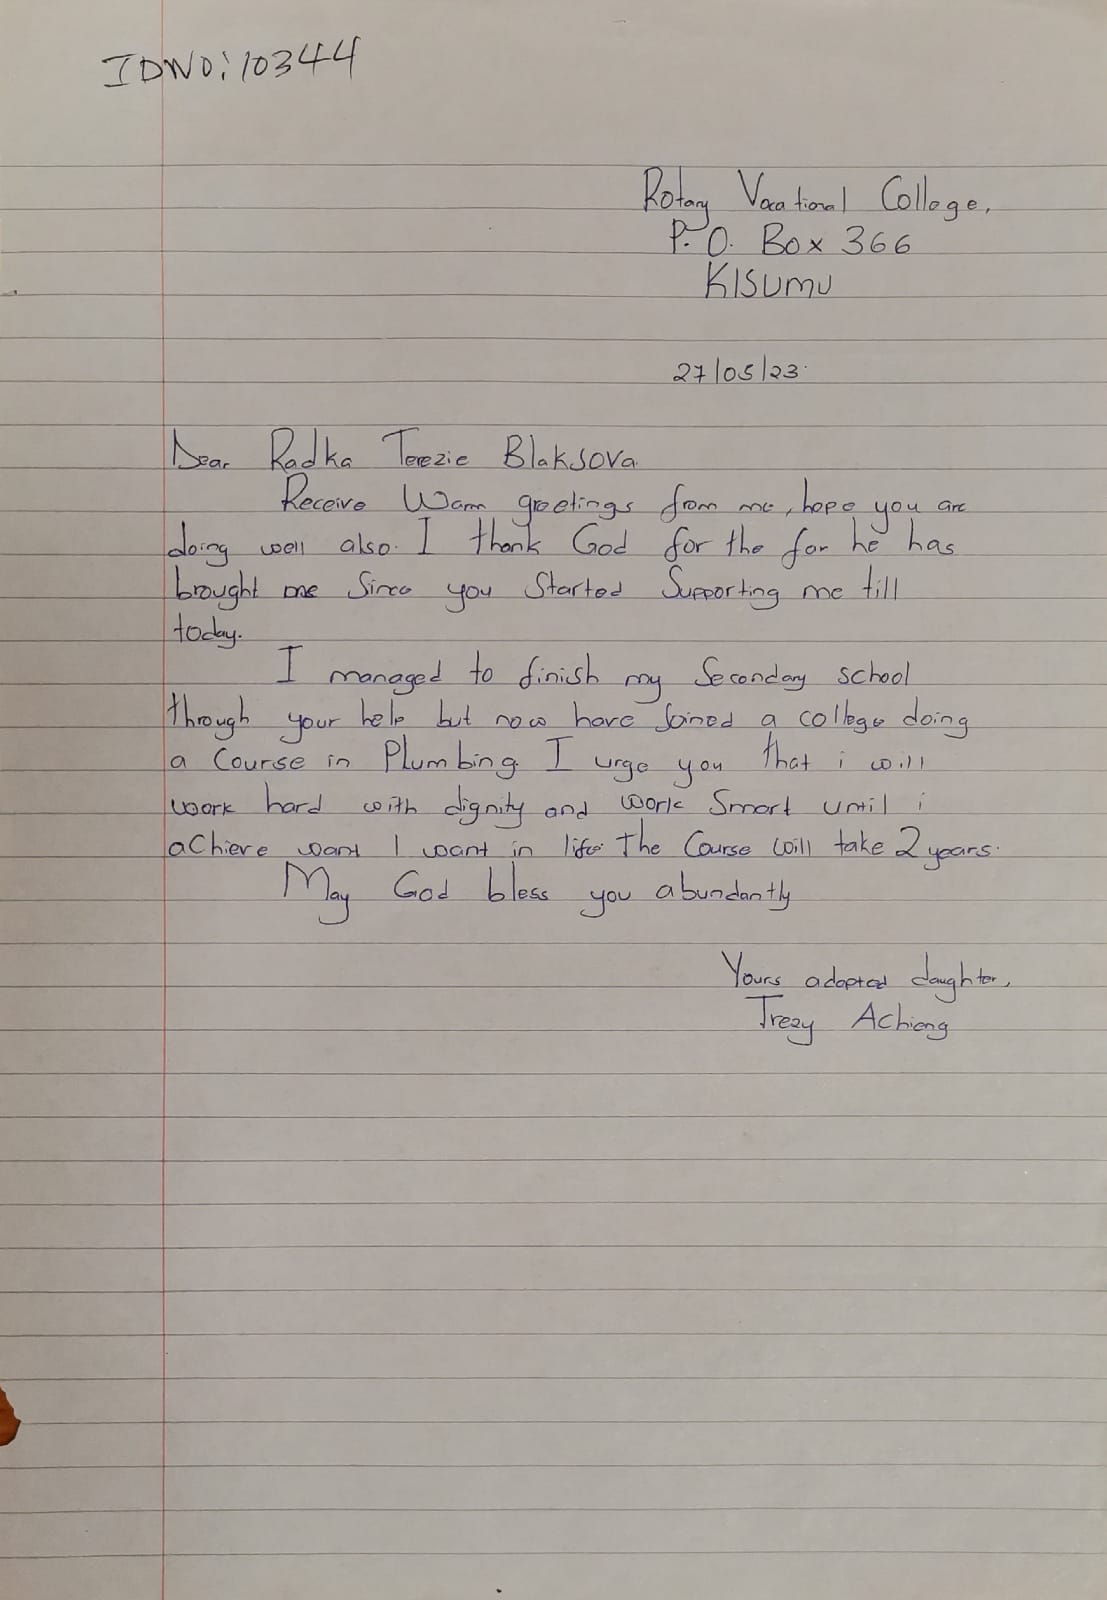 IDNO: 10344
Rotary Vocational College,
P. O. Box 366
KISUMU
27/05/23.
Dear Radka Terezie Blaksova.
Receive Warm greetings from me, hope you are
doing well also. I thank God for the far he has
brought me Since you Started Supporting me till
today.
I managed to finish my Secondary school
through your help but now have Joined a college doing
a Course in Plumbing. I urge you that i will
work hard with dignity and work Smart until i
achieve want I want in life. The Course will take 2 years.
May God bless you abundantly
Yours adopted daughter,
Trezy Achieng